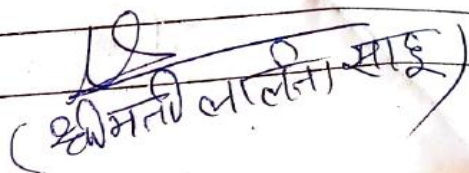 (श्रीमती ललिता साहू)